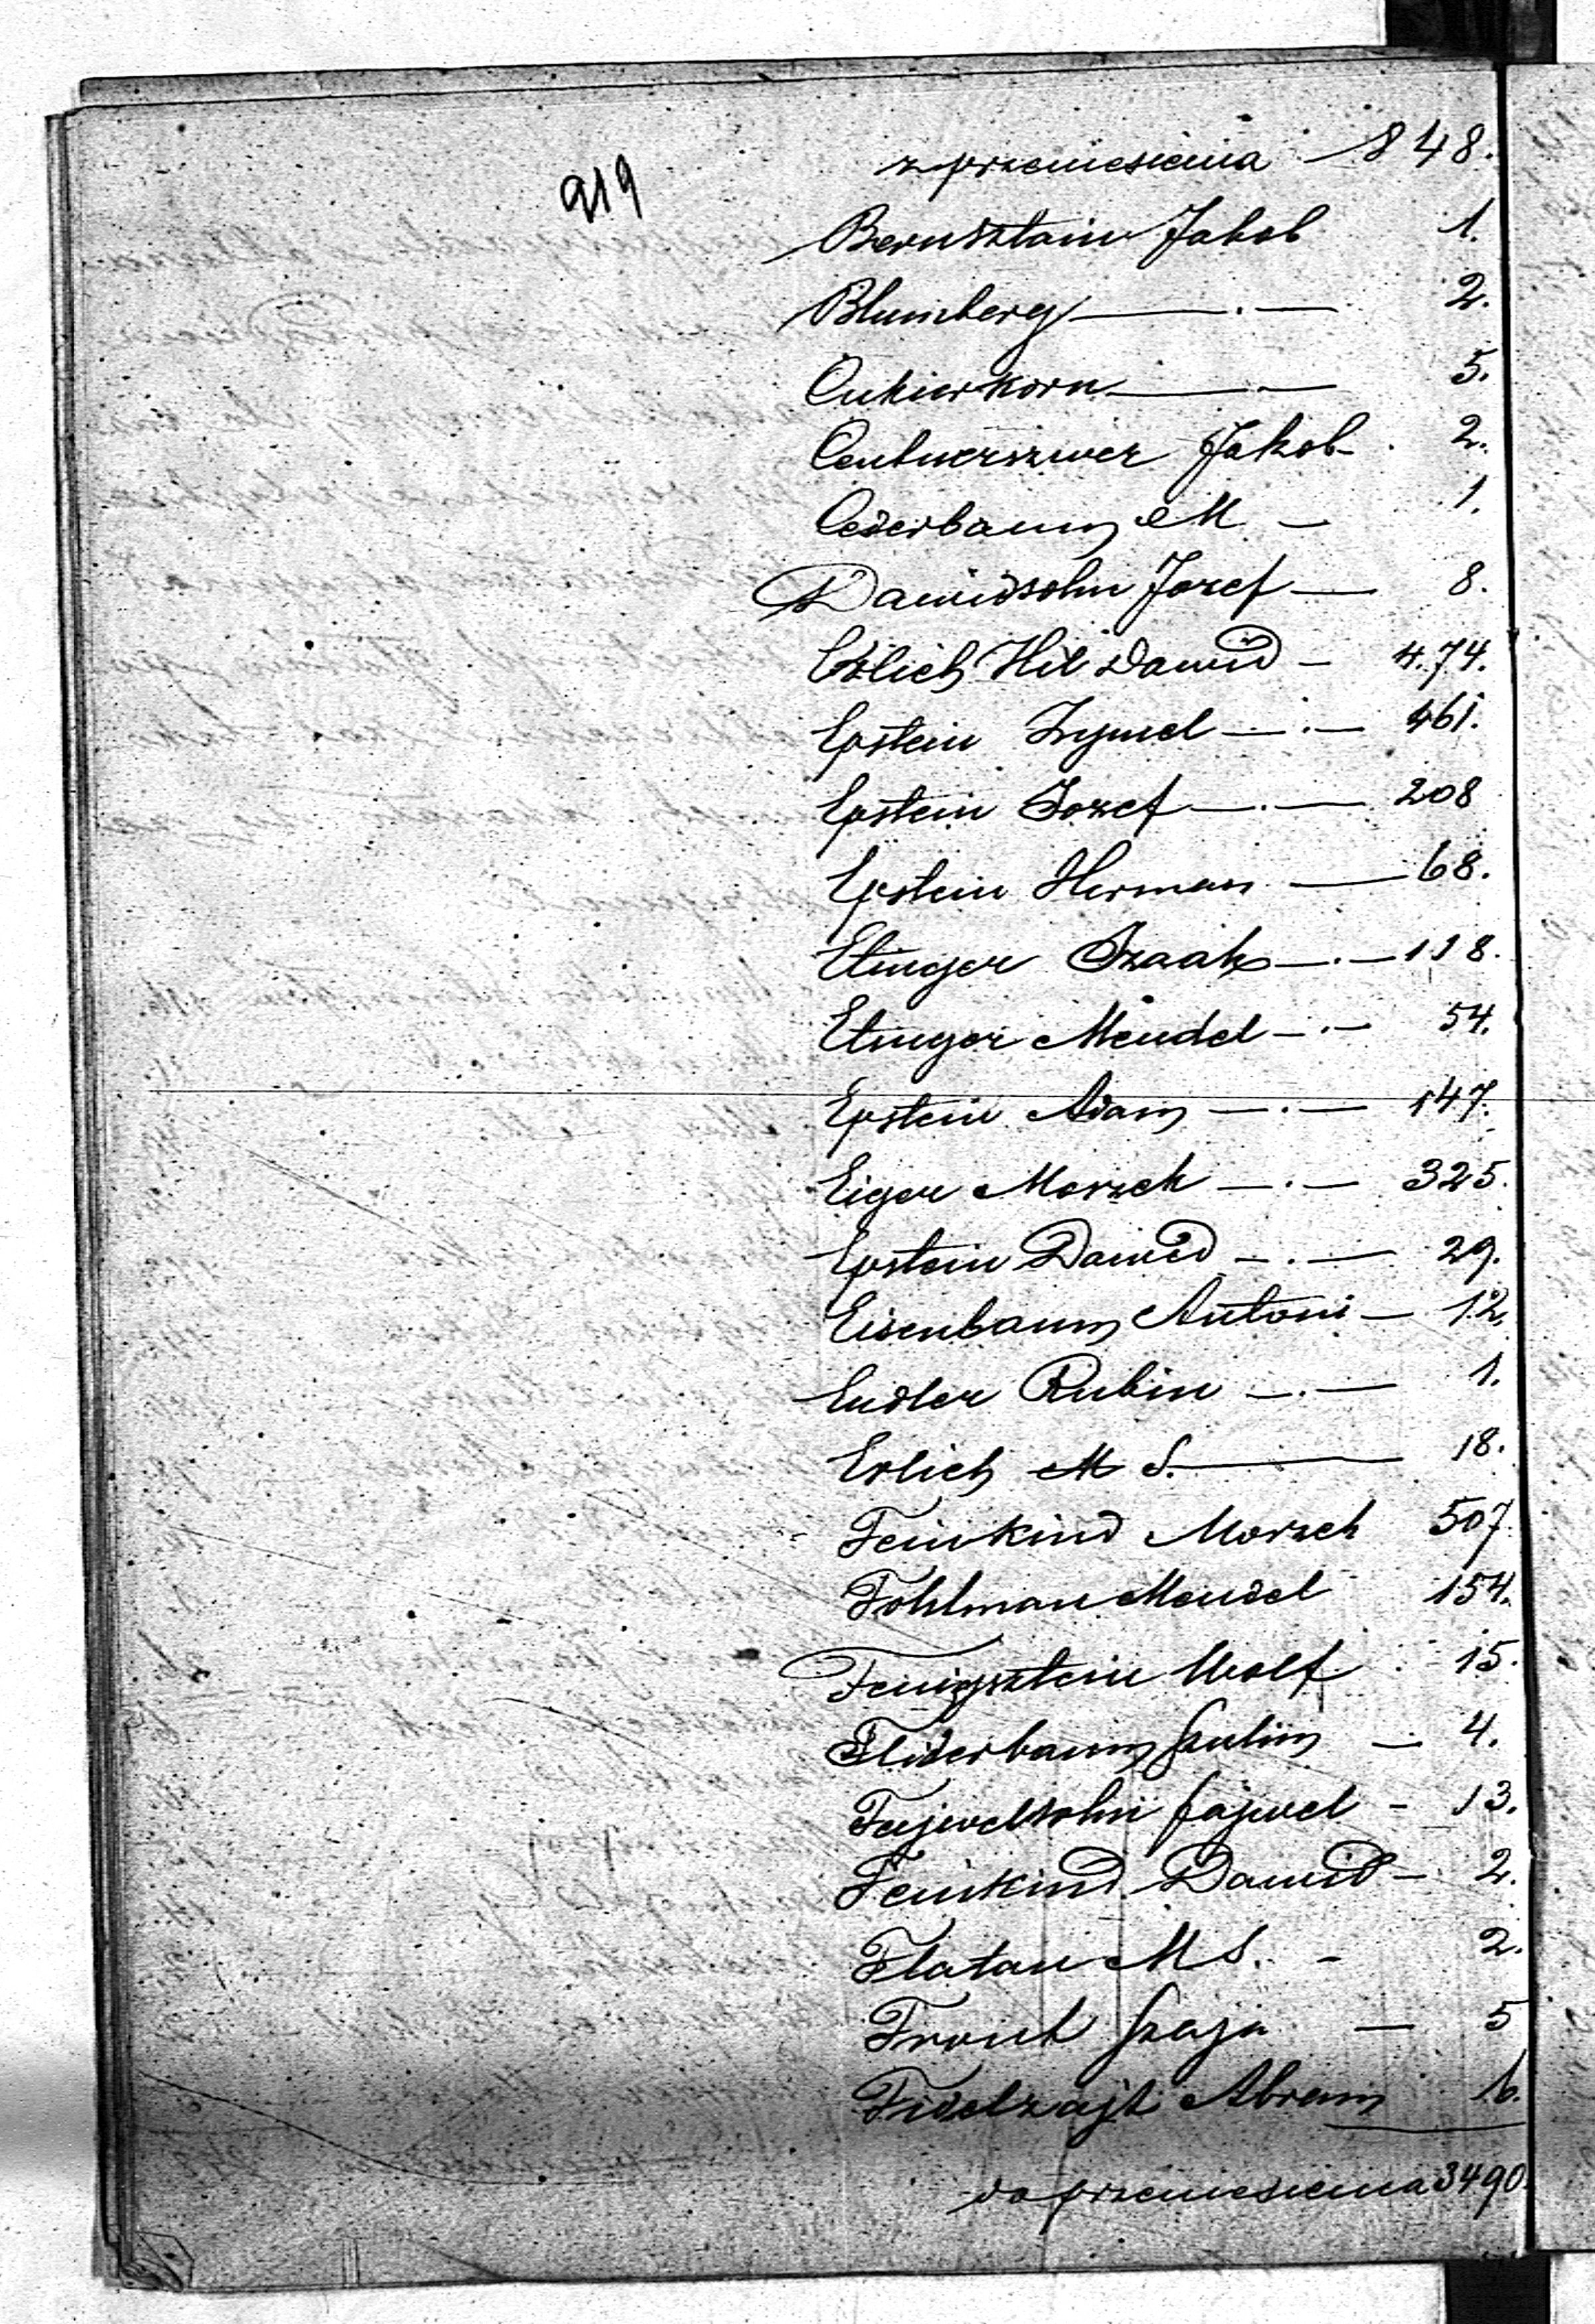 219
z przeniesienia 848.
Bernsztain Jakob 1.
Blumberg —.— 2.
Cukierkorn — 5.
Centnerszwer Jakob - 2.
Cederbaum M — 1.
Dawidsohn Jozef — 8.
Erlich Hil Dawid — 474.
Epstein Zymel —.— 461.
Epstein Jozef —.— 208
Epstein Herman — 68.
Etinger Izaak —.— 118.
Etinger Mendel —.— 54.
Epstein Adam —.— 147.
Eiger Morzek —.— 325.
Epstein Dawid —.— 29.
Eisenbaum Antoni — 12.
Endler Rubin —.— 1.
Erlich M S. — 18.
Feinkind Morzek 507.
Fohlman Mendel 154.
Fenigsztein Wolf 15.
Fliderbaum Szulim — 4.
Fajwelsohn fajwel - 13.
Feinkind Dawid - 2.
Flatau M S. - 2.
Szaja — 5
Abram 6.
do przeniesienia 3490.